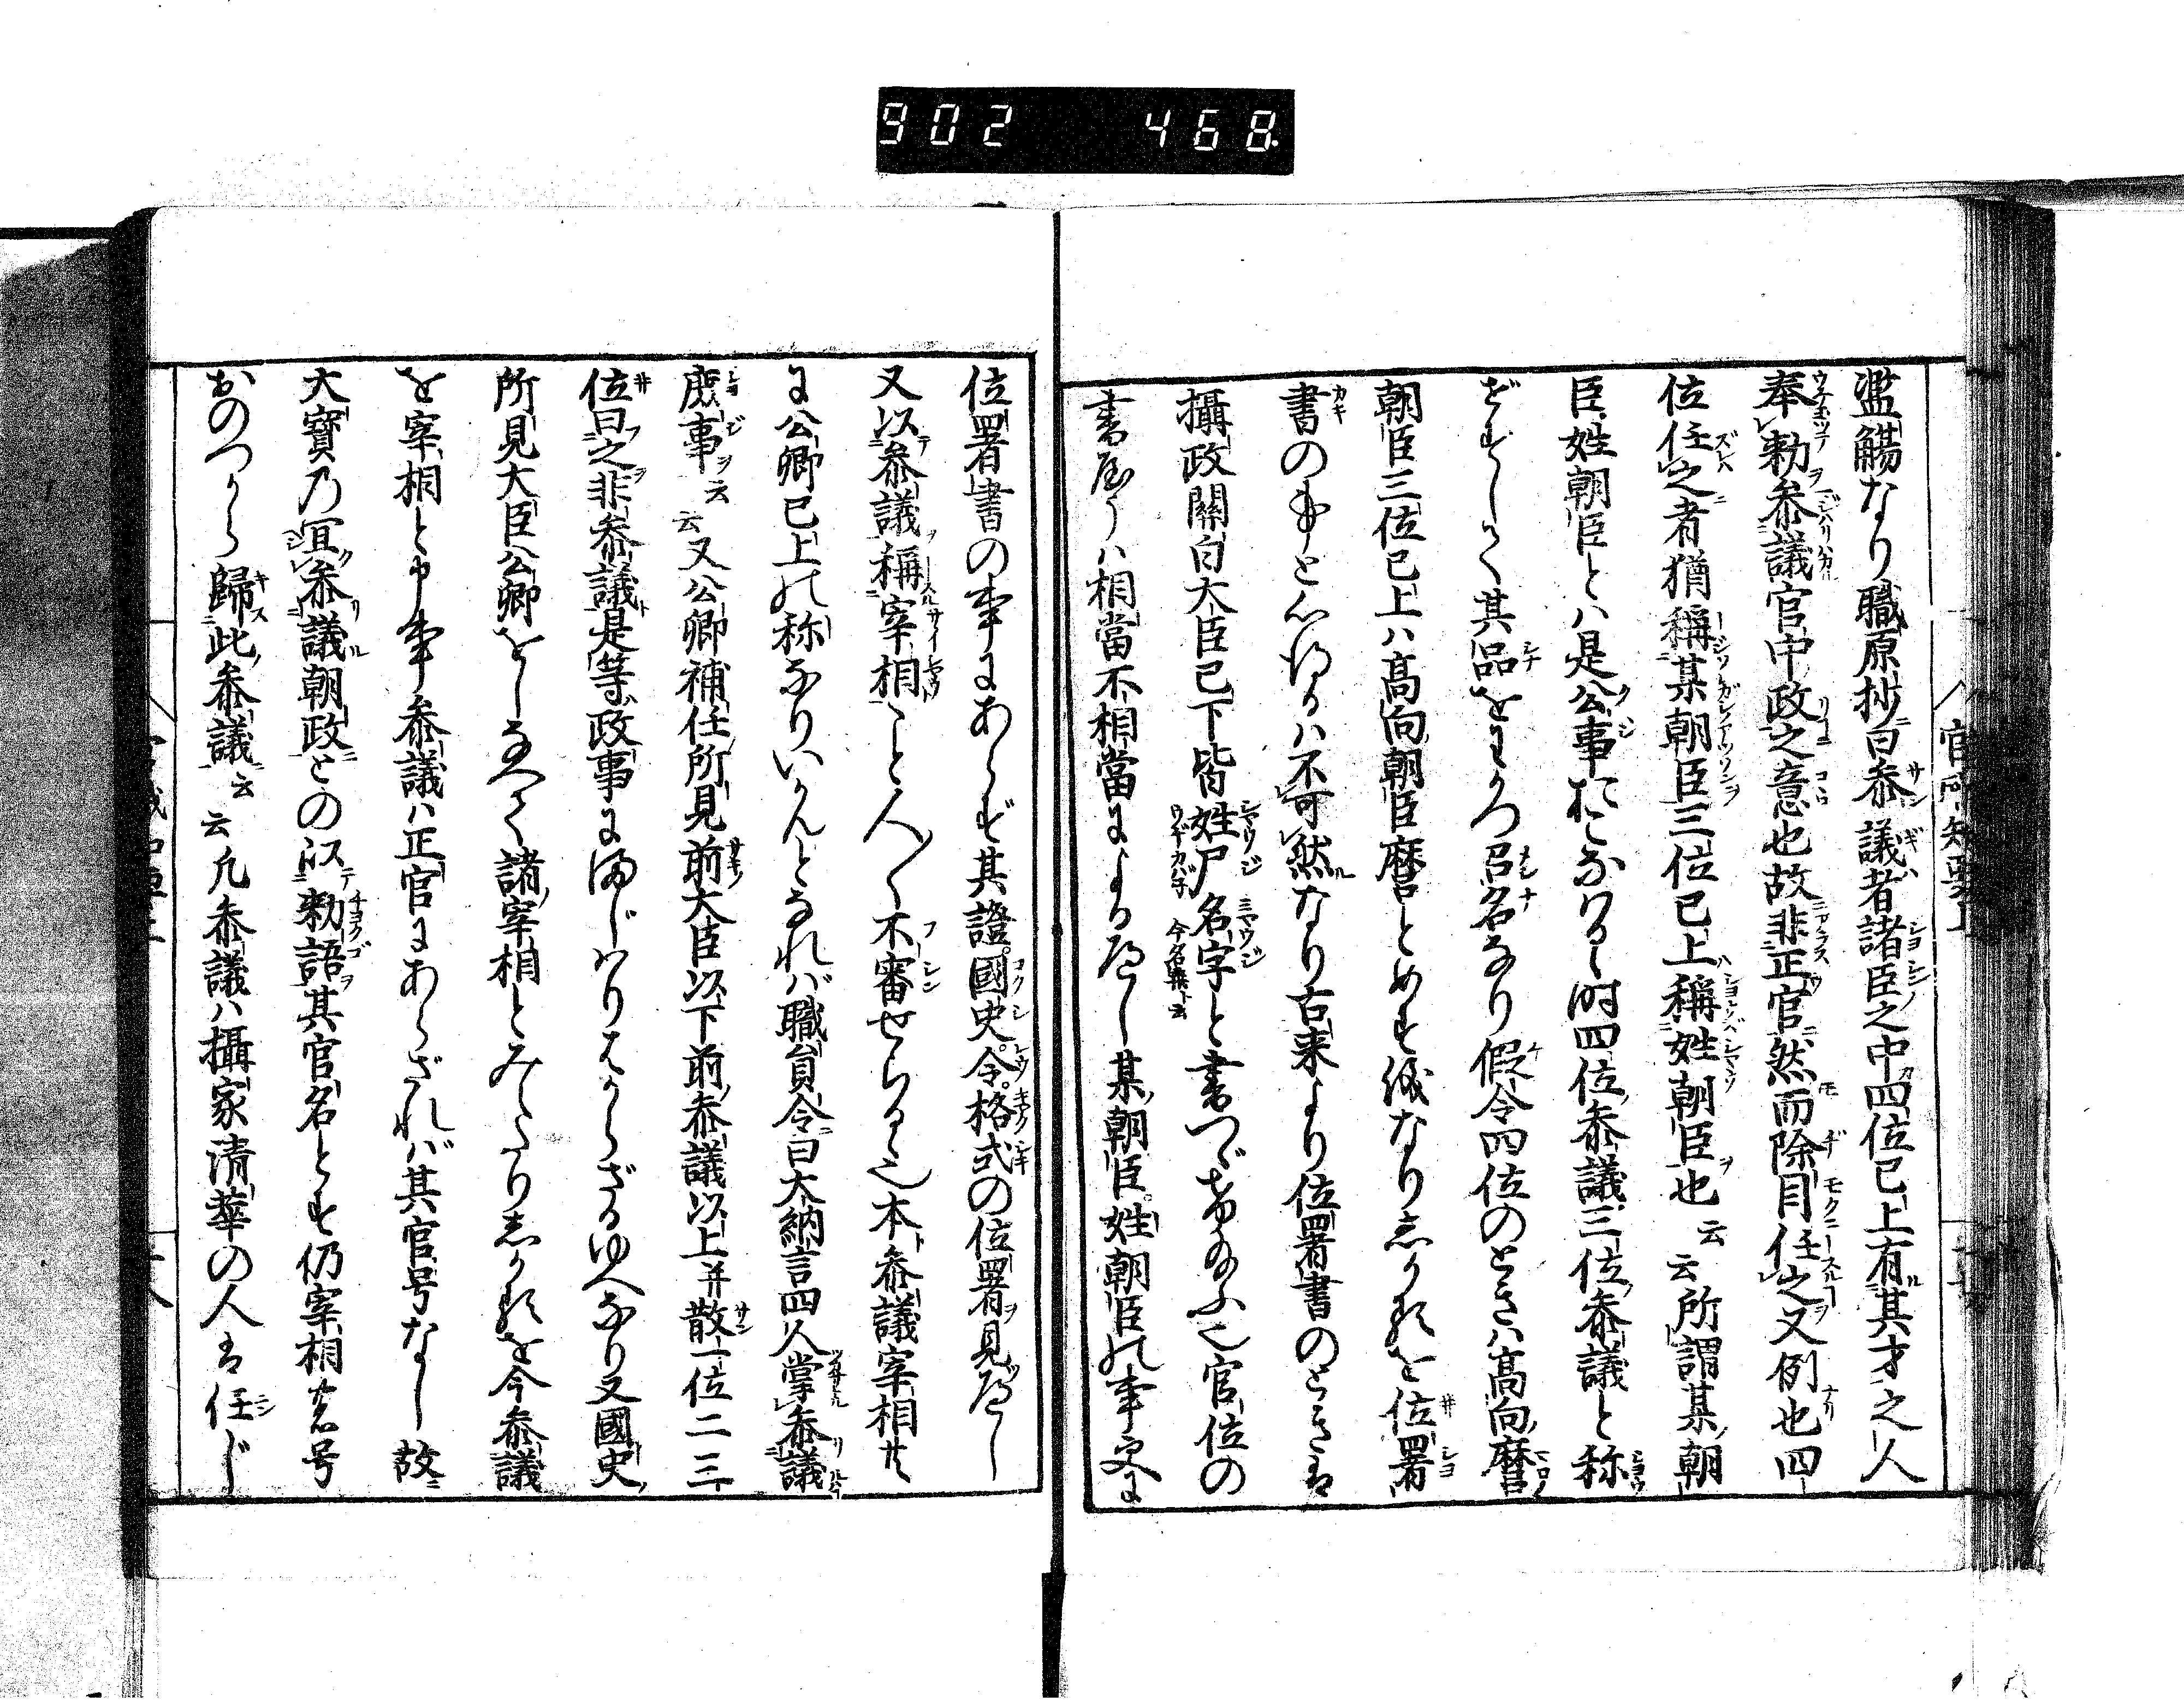 902 468
濫觴なり職原抄ニ曰参議者諸臣之中四位已上有其才之人
奉勅参議官中政之意也故非正官然而除目任之又例也四
位任之者猶稱某朝臣三位已上稱姓朝臣也云云所謂某朝
臣姓朝臣とハ是公事おこなハるゝ時四位参議三位参議と称
其品をわかつ召名なり假令四位のときハ高向麿
朝臣三位已上ハ高向朝臣麿とめす儀なりしかるを位署
書の事と心得るハ不可然なり古来より位署書のときは
攝政關白大臣已下皆姓尸名字と書つゞけ給ふ也官位の
書やうハ相當不相當によるべし某朝臣姓朝臣の事更に
位署書の事にあらず其證國史令格式の位署ヲ見べし
又以参議稱宰相こと人〳〵不審せらるゝ也本参議宰相共
に公卿已上の称なりいかんとなれバ職員令ニ曰大納言四人掌参議
庶事ヲ云云又公卿補任所見前大臣以下前参議以上并散一位二三
位曰之非参議是等政事にまじハりはからざるゆへなり又國史
所見大臣公卿をしなべて諸宰相とみへたりしかるを今参議
を宰相と申事参議ハ正官にあらざれバ其官号なし故ニ
大寶乃冝参議朝政との以勅語其官名とす仍宰相者号
おのつから歸此参議云云凡参議ハ攝家清華の人は任じ